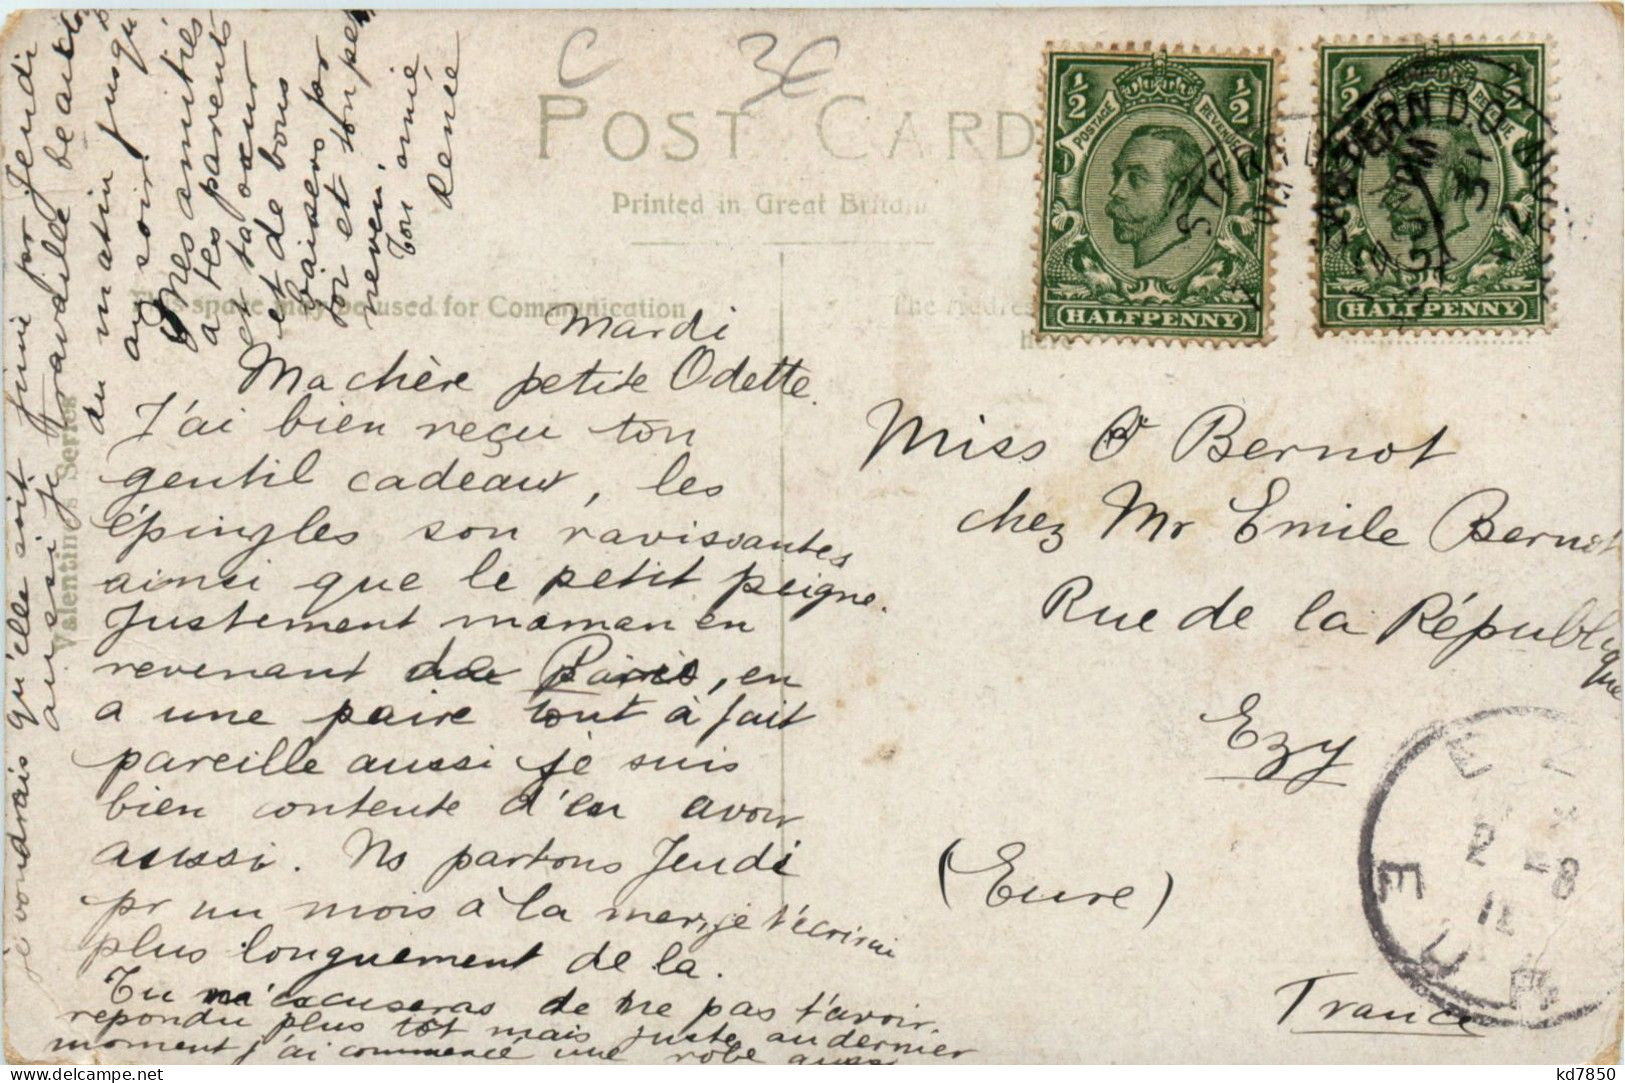 C 3€
POST CARD
Printed in Great Britain
This space may be used for Communication
The Address
here
Valentines Series
1/2 1/2
POSTAGE REVENUE
HALFPENNY
HALFPENNY
MALVERN D.O.
Mardi
Ma chère petite Odette.
J'ai bien reçu ton
gentil cadeau, les
épingles son ravissantes
ainsi que le petit peigne.
Justement maman en
revenant de Paris, en
a une paire tout à fait
pareille aussi je suis
bien contente d'en avoir
aussi. Ns partons Jeudi
pr un mois à la mer, je t'écrirai
plus longuement de la.
Tu m'excuseras de ne pas t'avoir
repondu plus tôt mais juste au dernier
moment j'ai commencé une robe aussi
je voudrais qu'elle soit finie pr Jeudi
aussi je travaille beaucoup
du matin jusqu'
au soir.
Mes amitiés
a tes parents
et ta sœur
et de bons
baisers pr
toi et ton petit
neveu.
Ton amie
Renée
Miss O Bernot
chez Mr Emile Bernot
Rue de la République
Ezy
(Eure)
France
EURE
kd7850